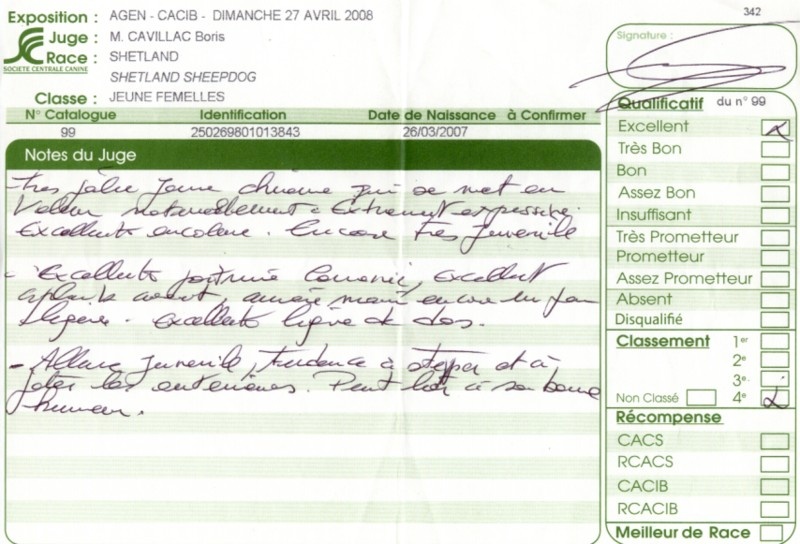 342
Exposition : AGEN - CACIB - DIMANCHE 27 AVRIL 2008
Juge : M. CAVILLAC Boris
Race : SHETLAND
SOCIETE CENTRALE CANINE
SHETLAND SHEEPDOG
Classe : JEUNE FEMELLES
N° Catalogue Identification Date de Naissance à Confirmer
99 250269801013843 26/03/2007
Notes du Juge
très jolie jeune chienne qui se met en
valeur naturellement. Extrement expressive.
Excellente encolure. Encore très juvenile
- Excellente poitrine excellent
avant, arrière encore un peu
légère. excellente ligne de dos.
- Allure juvenile, tendance à et à
les Peut à sa bonne
humeur.
Signature :
Qualificatif du n° 99
Excellent
Très Bon
Bon
Assez Bon
Insuffisant
Très Prometteur
Prometteur
Assez Prometteur
Absent
Disqualifié
Classement 1er
2e
3e
Non Classé 4e
Récompense
CACS
RCACS
CACIB
RCACIB
Meilleur de Race